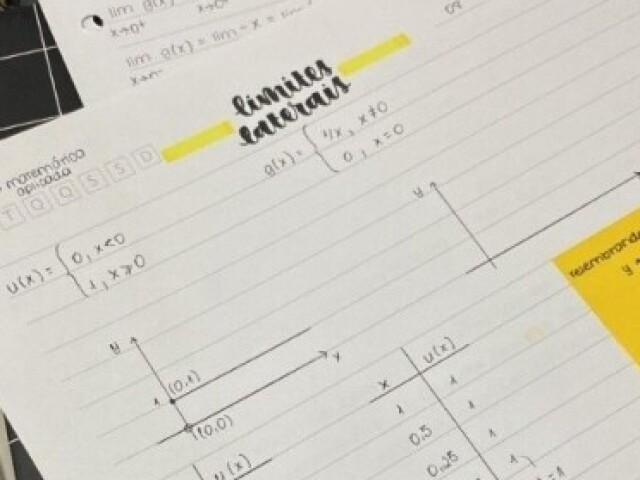 lim g(x)
x→0⁺
x→0⁺
lim g(x) = lim -x = lim
limites
laterais
matemática
aplicada
T Q Q S S D
g(x) = { 1/x, x≠0
0, x=0
u(x) = { 0, x<0
1, x≥0
y
relembrando
y
y
x
1 (0,1)
(0,0)
x u(x)
1 1
0,5 1
0,25 1
u(x)